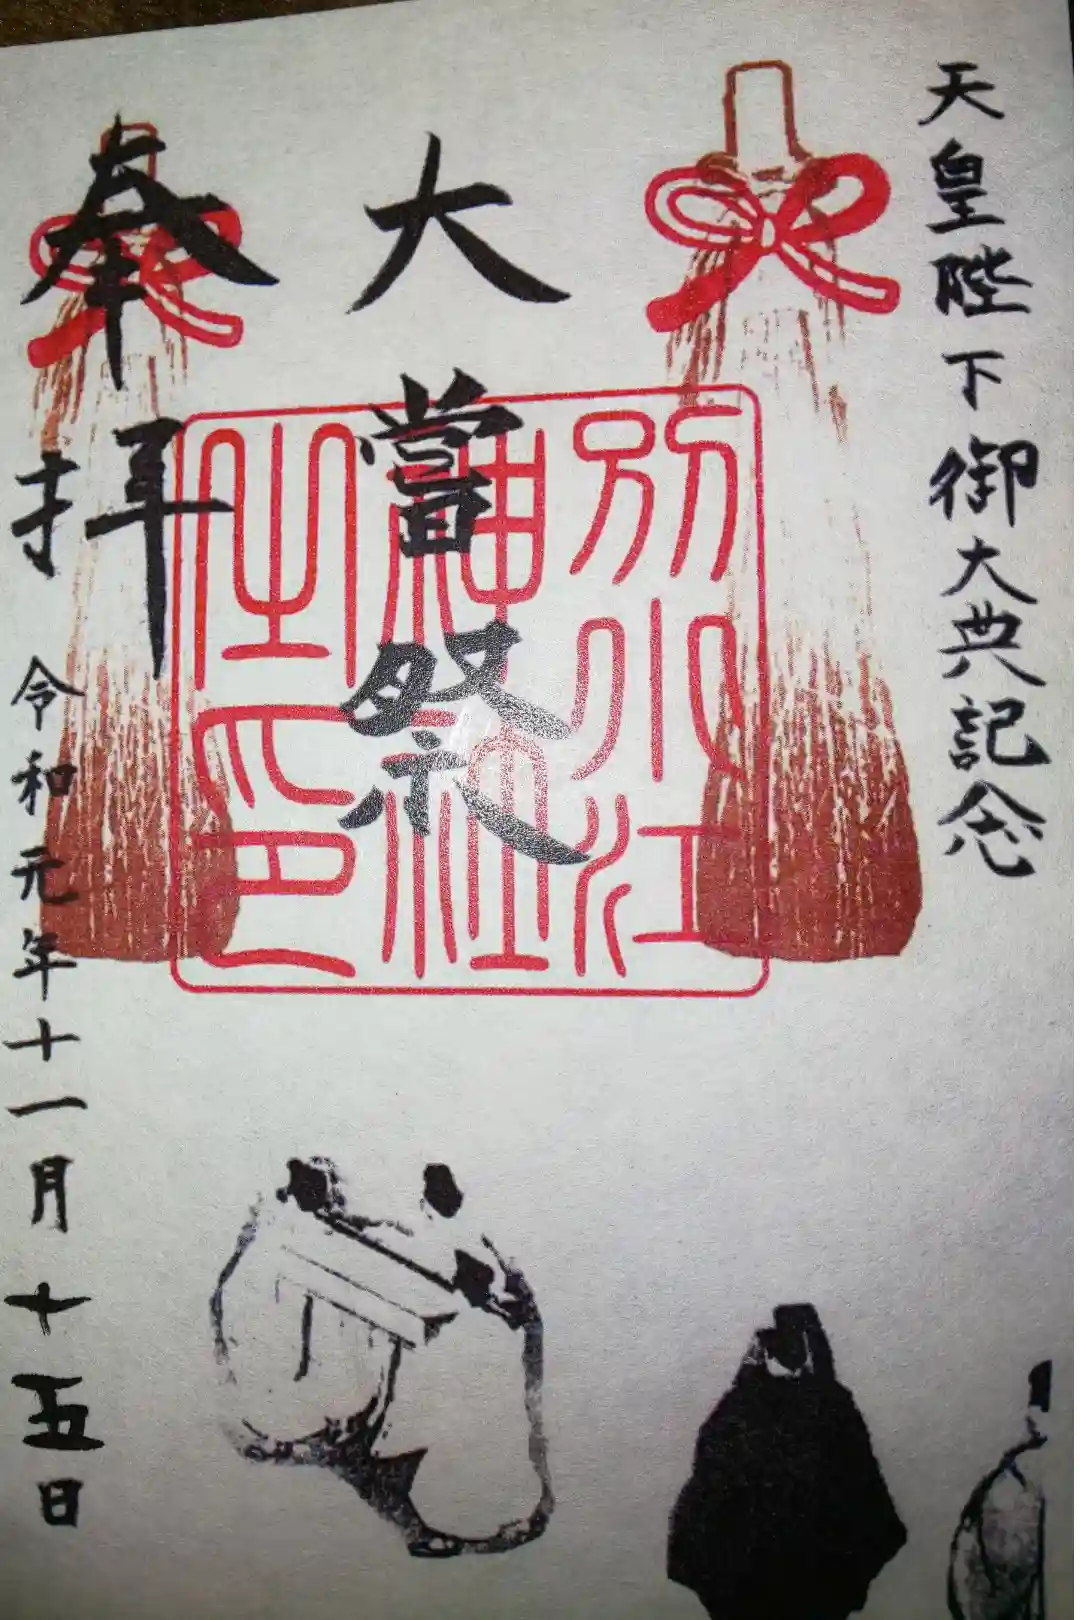 天皇陛下御大典記念
大嘗祭
奉拝
令和元年十一月十五日
別小江
神社
之印